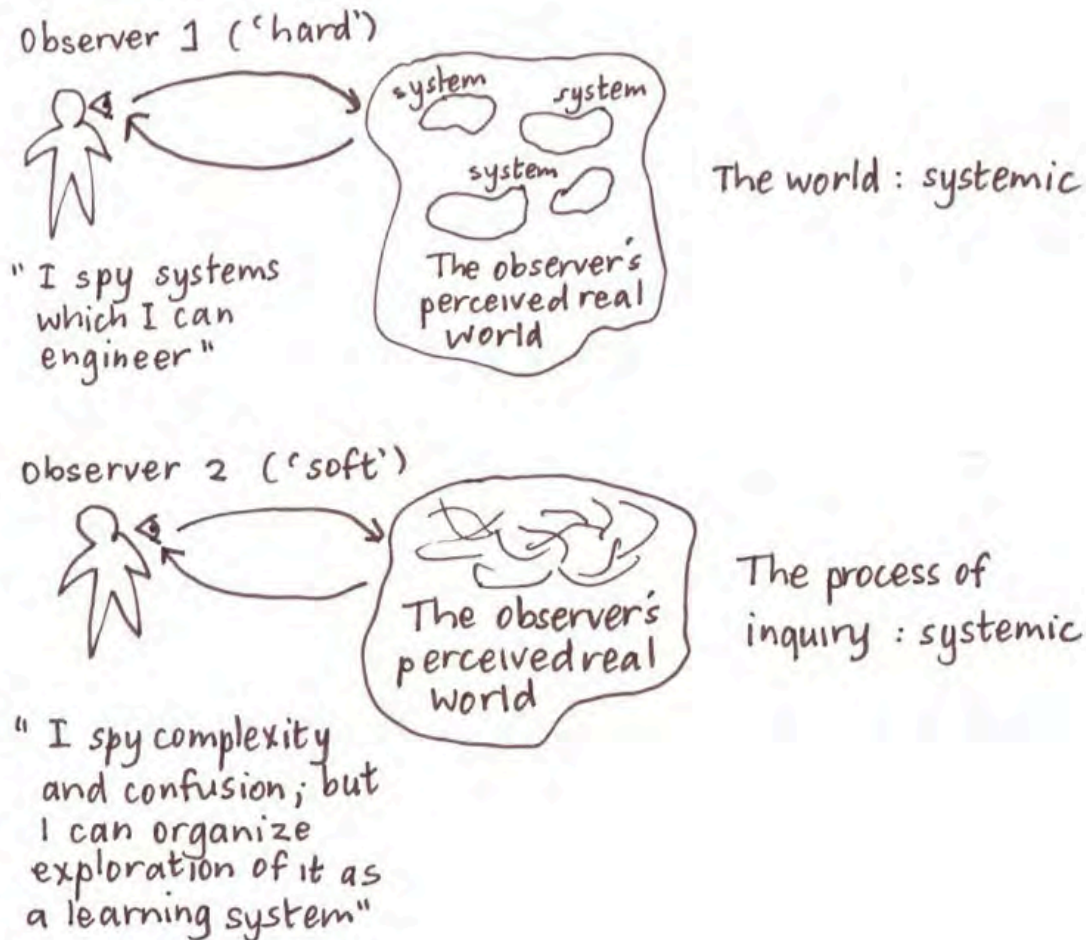 Observer 1 ('hard')
system
system
system
The observer's
perceived real
world
The world : systemic
"I spy systems
which I can
engineer"
Observer 2 ('soft')
The observer's
perceived real
world
The process of
inquiry : systemic
"I spy complexity
and confusion; but
I can organize
exploration of it as
a learning system"